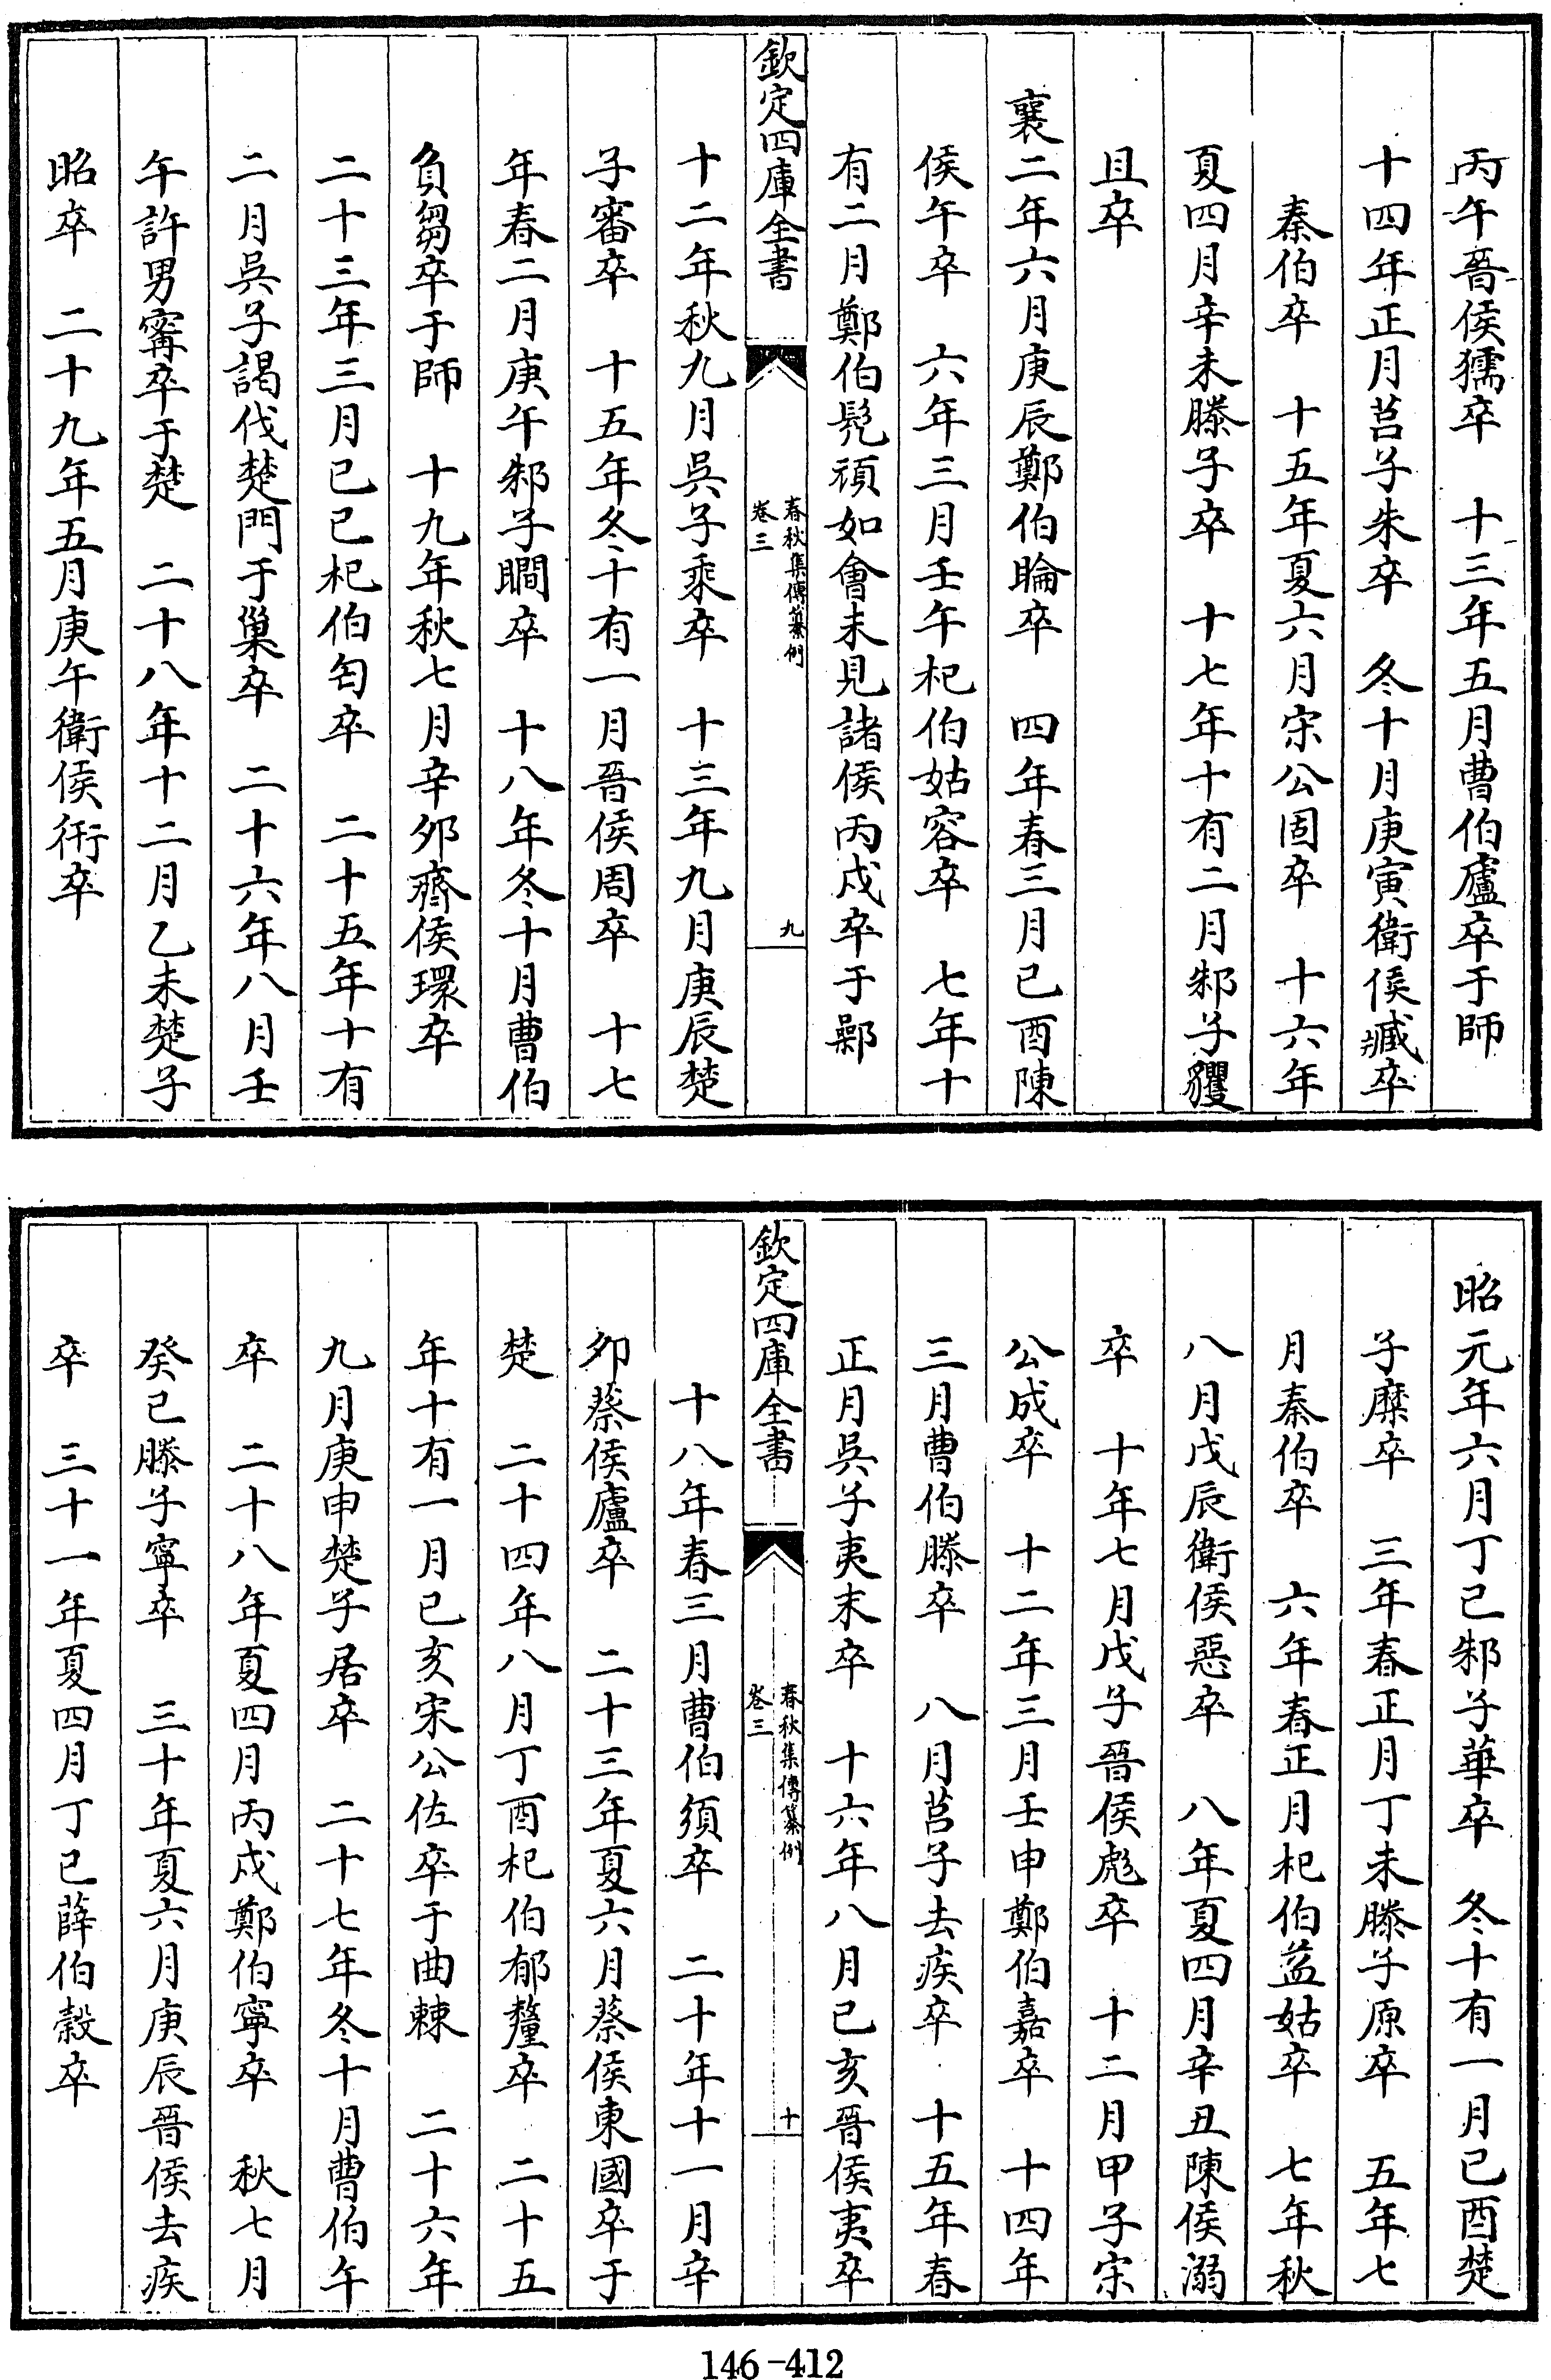 丙午晉侯獳卒　十三年五月曹伯廬卒于師
十四年正月莒子朱卒　冬十月庚寅衛侯臧卒
秦伯卒　十五年夏六月宋公固卒　十六年
夏四月辛未滕子卒　十七年十有二月邾子貜
且卒
襄二年六月庚辰鄭伯睔卒　四年春三月己酉陳
侯午卒　六年三月壬午杞伯姑容卒　七年十
有二月鄭伯髠頑如會未見諸侯丙戌卒于鄵
欽定四庫全書　春秋集傳纂例　卷三　九
十二年秋九月吳子乘卒　十三年九月庚辰楚
子審卒　十五年冬十有一月晉侯周卒　十七
年春二月庚午邾子瞷卒　十八年冬十月曹伯
負芻卒于師　十九年秋七月辛夘齊侯環卒
二十三年三月己巳杞伯匄卒　二十五年十有
二月吳子謁伐楚門于巢卒　二十六年八月壬
午許男甯卒于楚　二十八年十二月乙未楚子
昭卒　二十九年五月庚午衛侯衎卒
昭元年六月丁巳邾子華卒　冬十有一月己酉楚
子麋卒　三年春正月丁未滕子原卒　五年七
月秦伯卒　六年春正月杞伯益姑卒　七年秋
八月戊辰衛侯惡卒　八年夏四月辛丑陳侯溺
卒　十年七月戊子晉侯彪卒　十二月甲子宋
公成卒　十二年三月壬申鄭伯嘉卒　十四年
三月曹伯滕卒　八月莒子去疾卒　十五年春
正月吳子夷末卒　十六年八月己亥晉侯夷卒
欽定四庫全書　春秋集傳纂例　卷三　十
十八年春三月曹伯須卒　二十年十一月辛
夘蔡侯廬卒　二十三年夏六月蔡侯東國卒于
楚　二十四年八月丁酉杞伯郁釐卒　二十五
年十有一月己亥宋公佐卒于曲棘　二十六年
九月庚申楚子居卒　二十七年冬十月曹伯午
卒　二十八年夏四月丙戌鄭伯寧卒　秋七月
癸巳滕子寧卒　三十年夏六月庚辰晉侯去疾
卒　三十一年夏四月丁巳薛伯穀卒
146-412